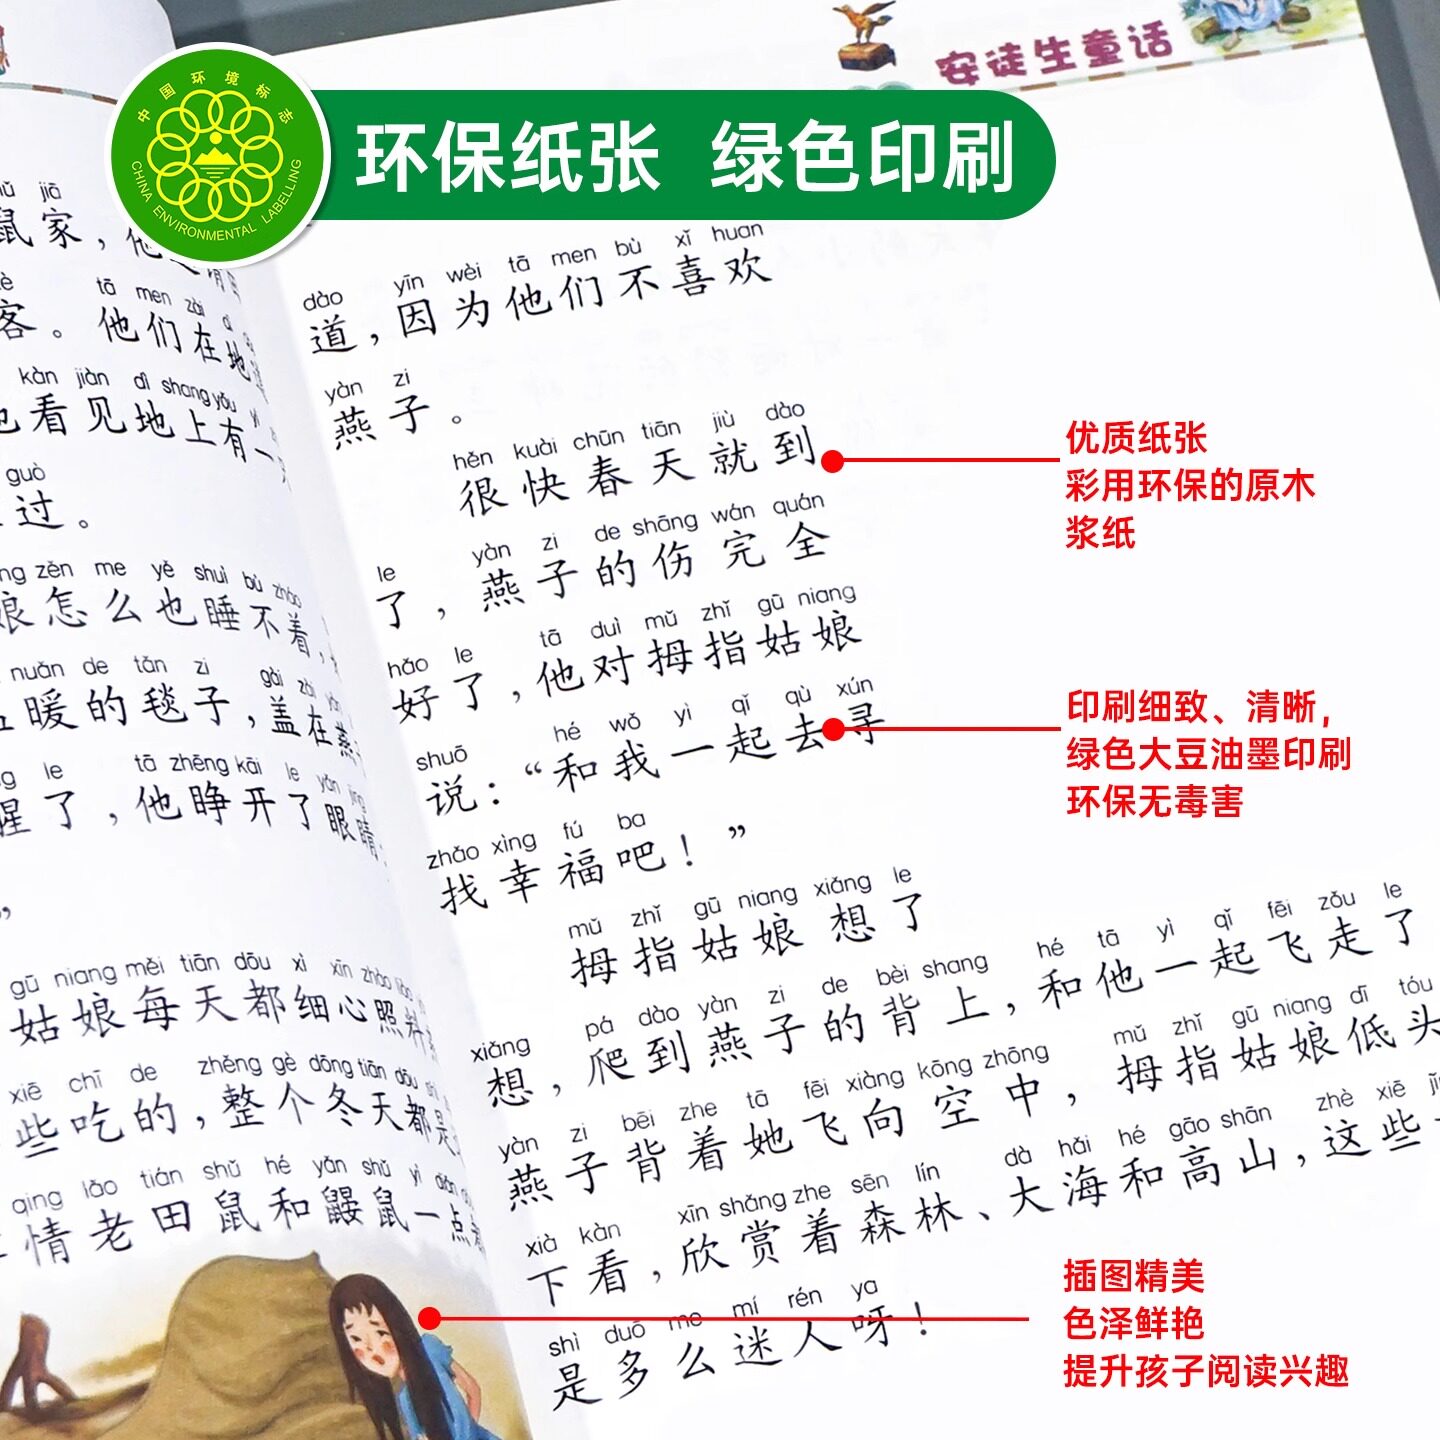 安徒生童话
中国环境标志
CHINA ENVIRONMENTAL LABELLING
环保纸张 绿色印刷
jiā
鼠家，他
tā men zài
客。他们在地
kàn jiàn dì shang yǒu yì
也看见地上有一
guò
过。
zěn me yě shuì bù zháo
娘怎么也睡不着，
nuǎn de tǎn zi gài zài yàn
暖的毯子，盖在燕
le tā zhēng kāi le yǎn jing
醒了，他睁开了眼睛
”
gū niang měi tiān dōu xì xīn zhào liào
姑娘每天都细心照料
xiē chī de zhěng gè dōng tiān dōu shì
些吃的，整个冬天都是
qing lǎo tián shǔ hé yǎn shǔ yì diǎn
情老田鼠和鼹鼠一点都
dào yīn wèi tā men bù xǐ huan
道，因为他们不喜欢
yàn zi
燕子。
hěn kuài chūn tiān jiù dào
很快春天就到
le yàn zi de shāng wán quán
了，燕子的伤完全
hǎo le tā duì mǔ zhǐ gū niang
好了，他对拇指姑娘
shuō hé wǒ yì qǐ qù xún
说：“和我一起去寻
zhǎo xìng fú ba
找幸福吧！”
mǔ zhǐ gū niang xiǎng le
拇指姑娘想了
xiǎng pá dào yàn zi de bèi shang hé tā yì qǐ fēi zǒu le
想，爬到燕子的背上，和他一起飞走了
yàn zi bēi zhe tā fēi xiàng kōng zhōng mǔ zhǐ gū niang dī tóu
燕子背着她飞向空中，拇指姑娘低头
xià kàn xīn shǎng zhe sēn lín dà hǎi hé gāo shān zhè xiē
下看，欣赏着森林、大海和高山，这些
shì duō me mí rén ya
是多么迷人呀！
优质纸张
彩用环保的原木
浆纸
印刷细致、清晰，
绿色大豆油墨印刷
环保无毒害
插图精美
色泽鲜艳
提升孩子阅读兴趣